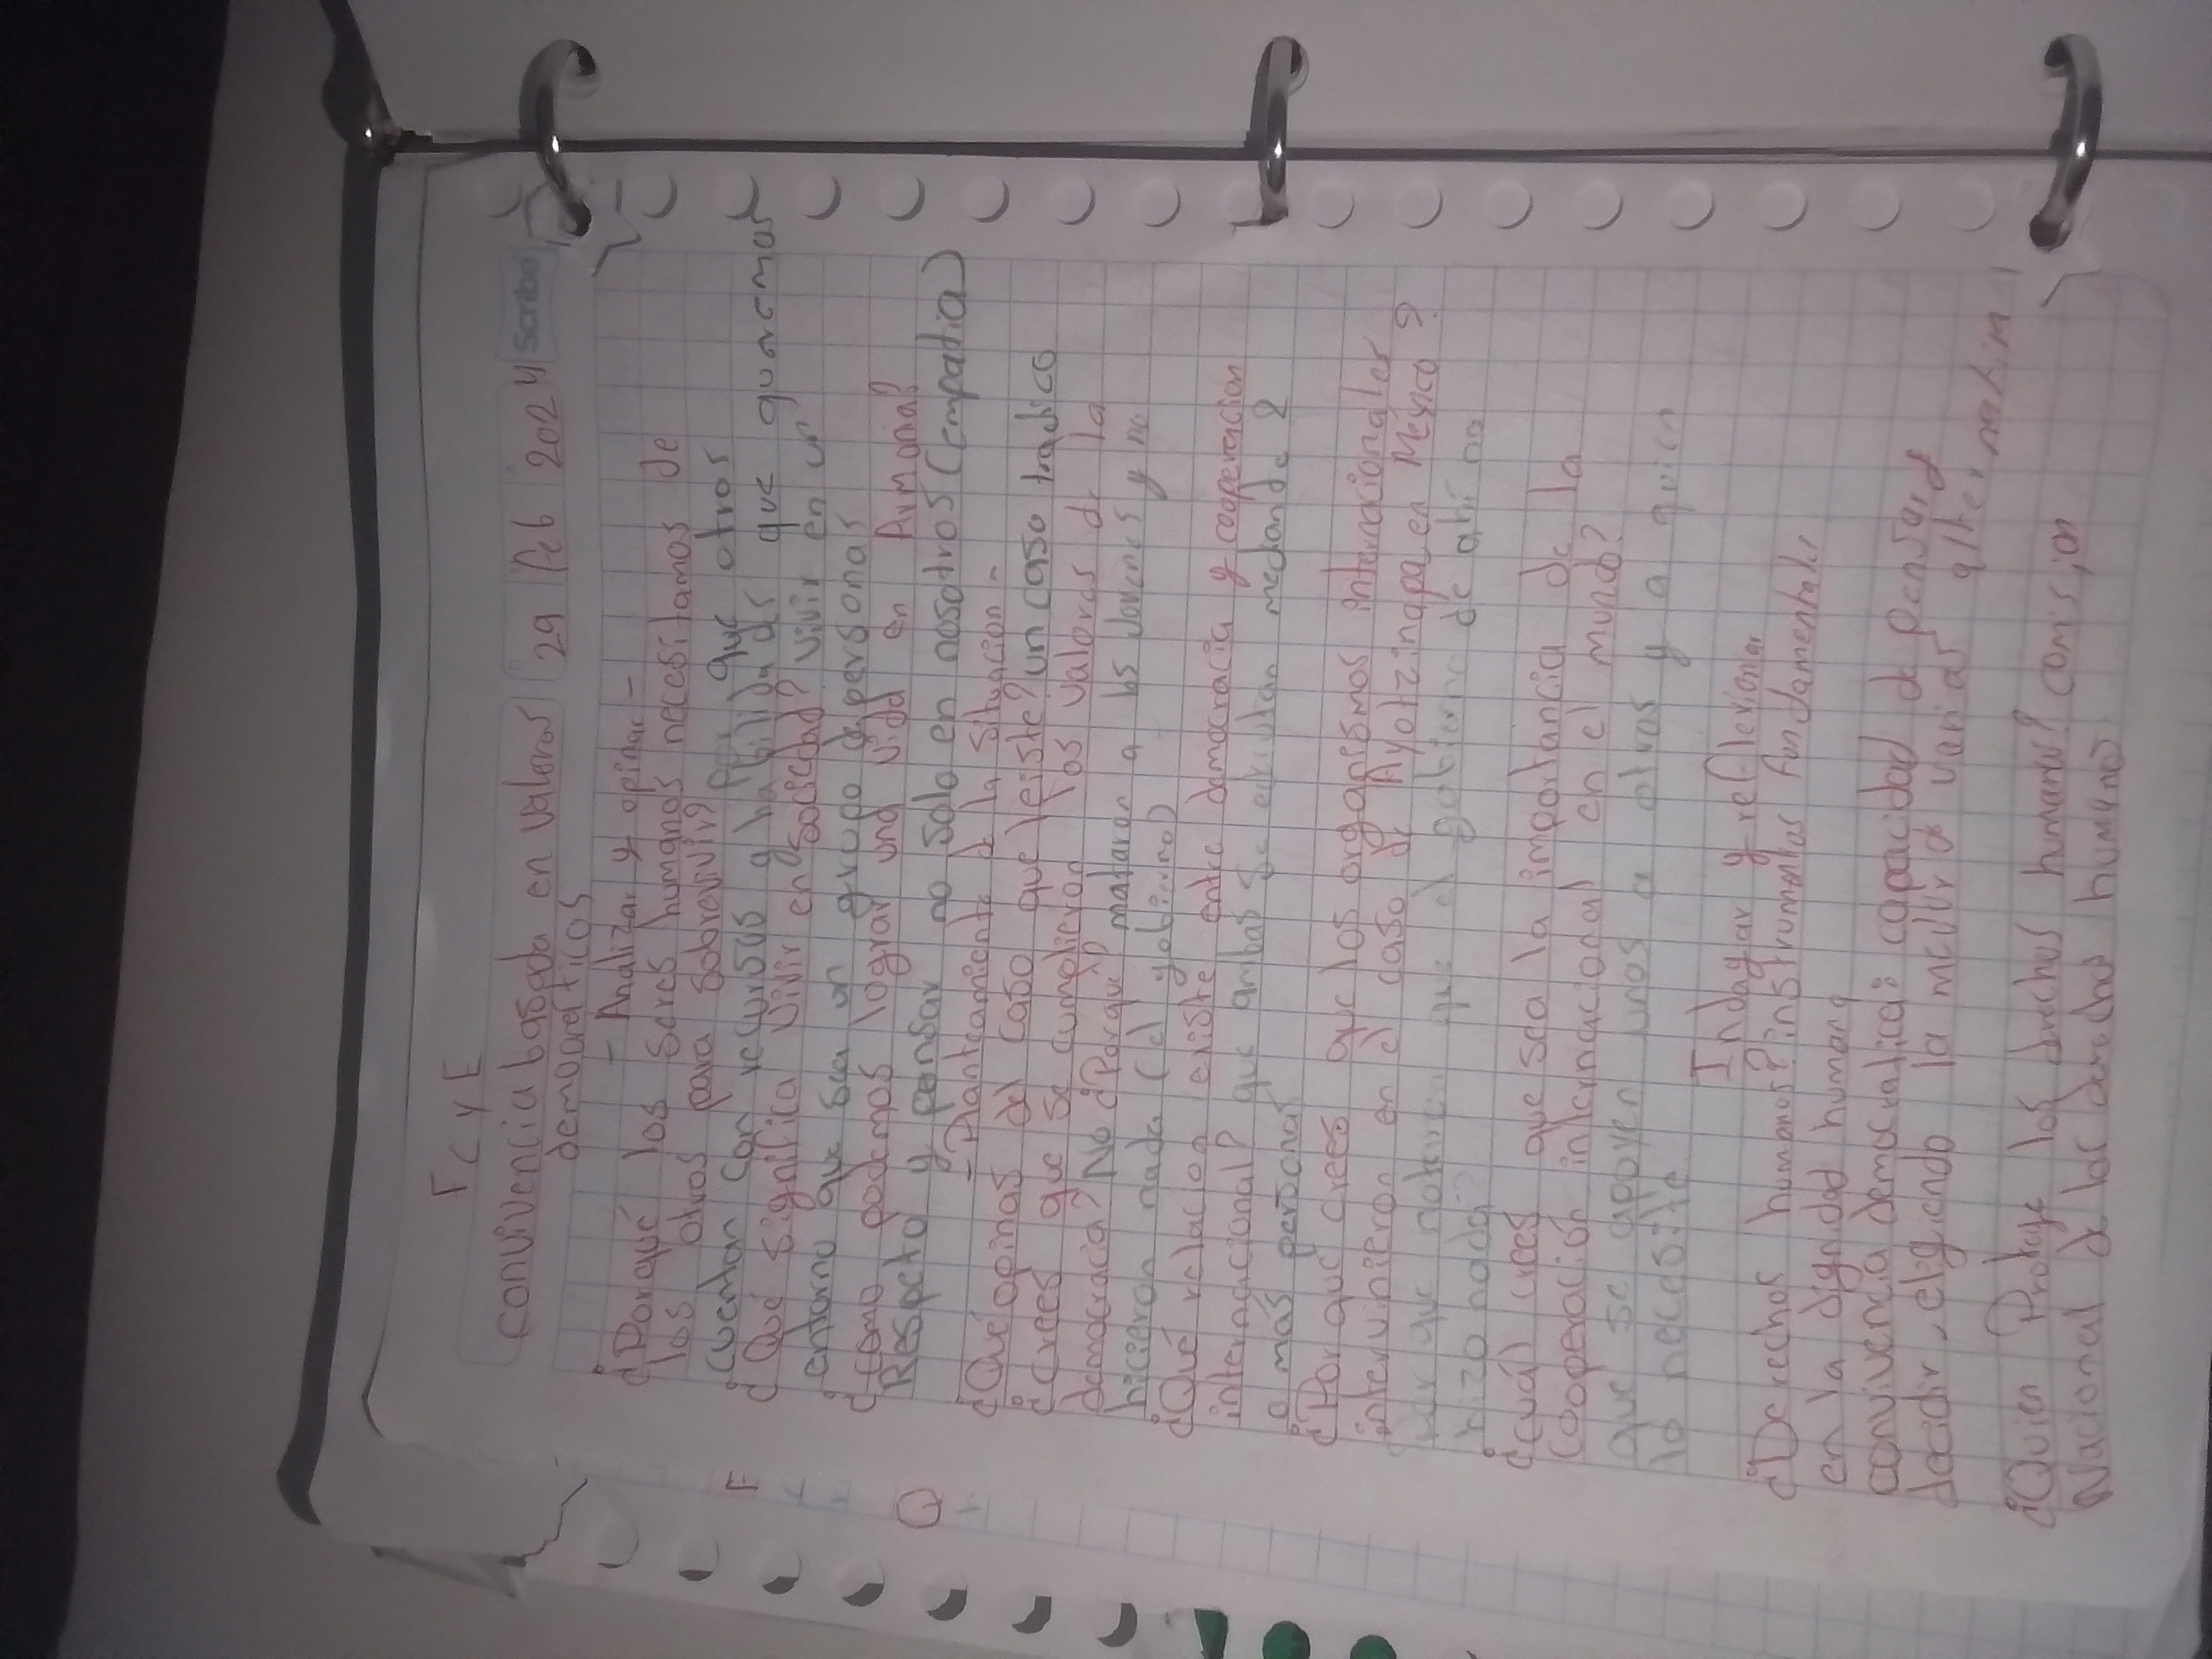 F C y E
convivencia basada en valores 29 feb 2024 Scribe
democraticos
- Analizar y opinar -
¿Porqué los seres humanos necesitamos de
los otros para sobrevivir? que otros
cuentan con recursos y habilidades que que no tenemos
¿Qué significa vivir en sociedad? vivir en un
entorno que sea un grupo de personas
¿como podemos lograr una vida en Armonia?
Respeto y pensar no solo en nosotros (empatia)
- Planteamiento de la situacion -
¿Qué opinas del caso que leiste? un caso tragico
¿crees que se cumplieron los valores de la
democracia? No ¿Porqué? mataron a los jovenes y no
hicieron nada (el gobierno)
¿Qué relacion existe entre democracia y cooperacion
internacional? que ambas se ejecutan mediante 2
o más personas
¿Por qué crees que los organismos internacionales
intervinieron en el caso de Ayotzinapa en México?
por que notaron que el gobierno de ahí no
hizo nada
¿cuál crees que sea la importancia de la
cooperación internacional en el mundo?
que se apoyen unos a otros y a quien
lo necesite
Indagar y reflexionar
¿Derechos humanos? instrumentos fundamentales
en la dignidad humana
convivencia democratica: capacidad de pensar y
decidir, eligiendo la mejor de varias
¿Quien Protege los derechos humanos? comision
Nacional de los derechos humanos
F
Q